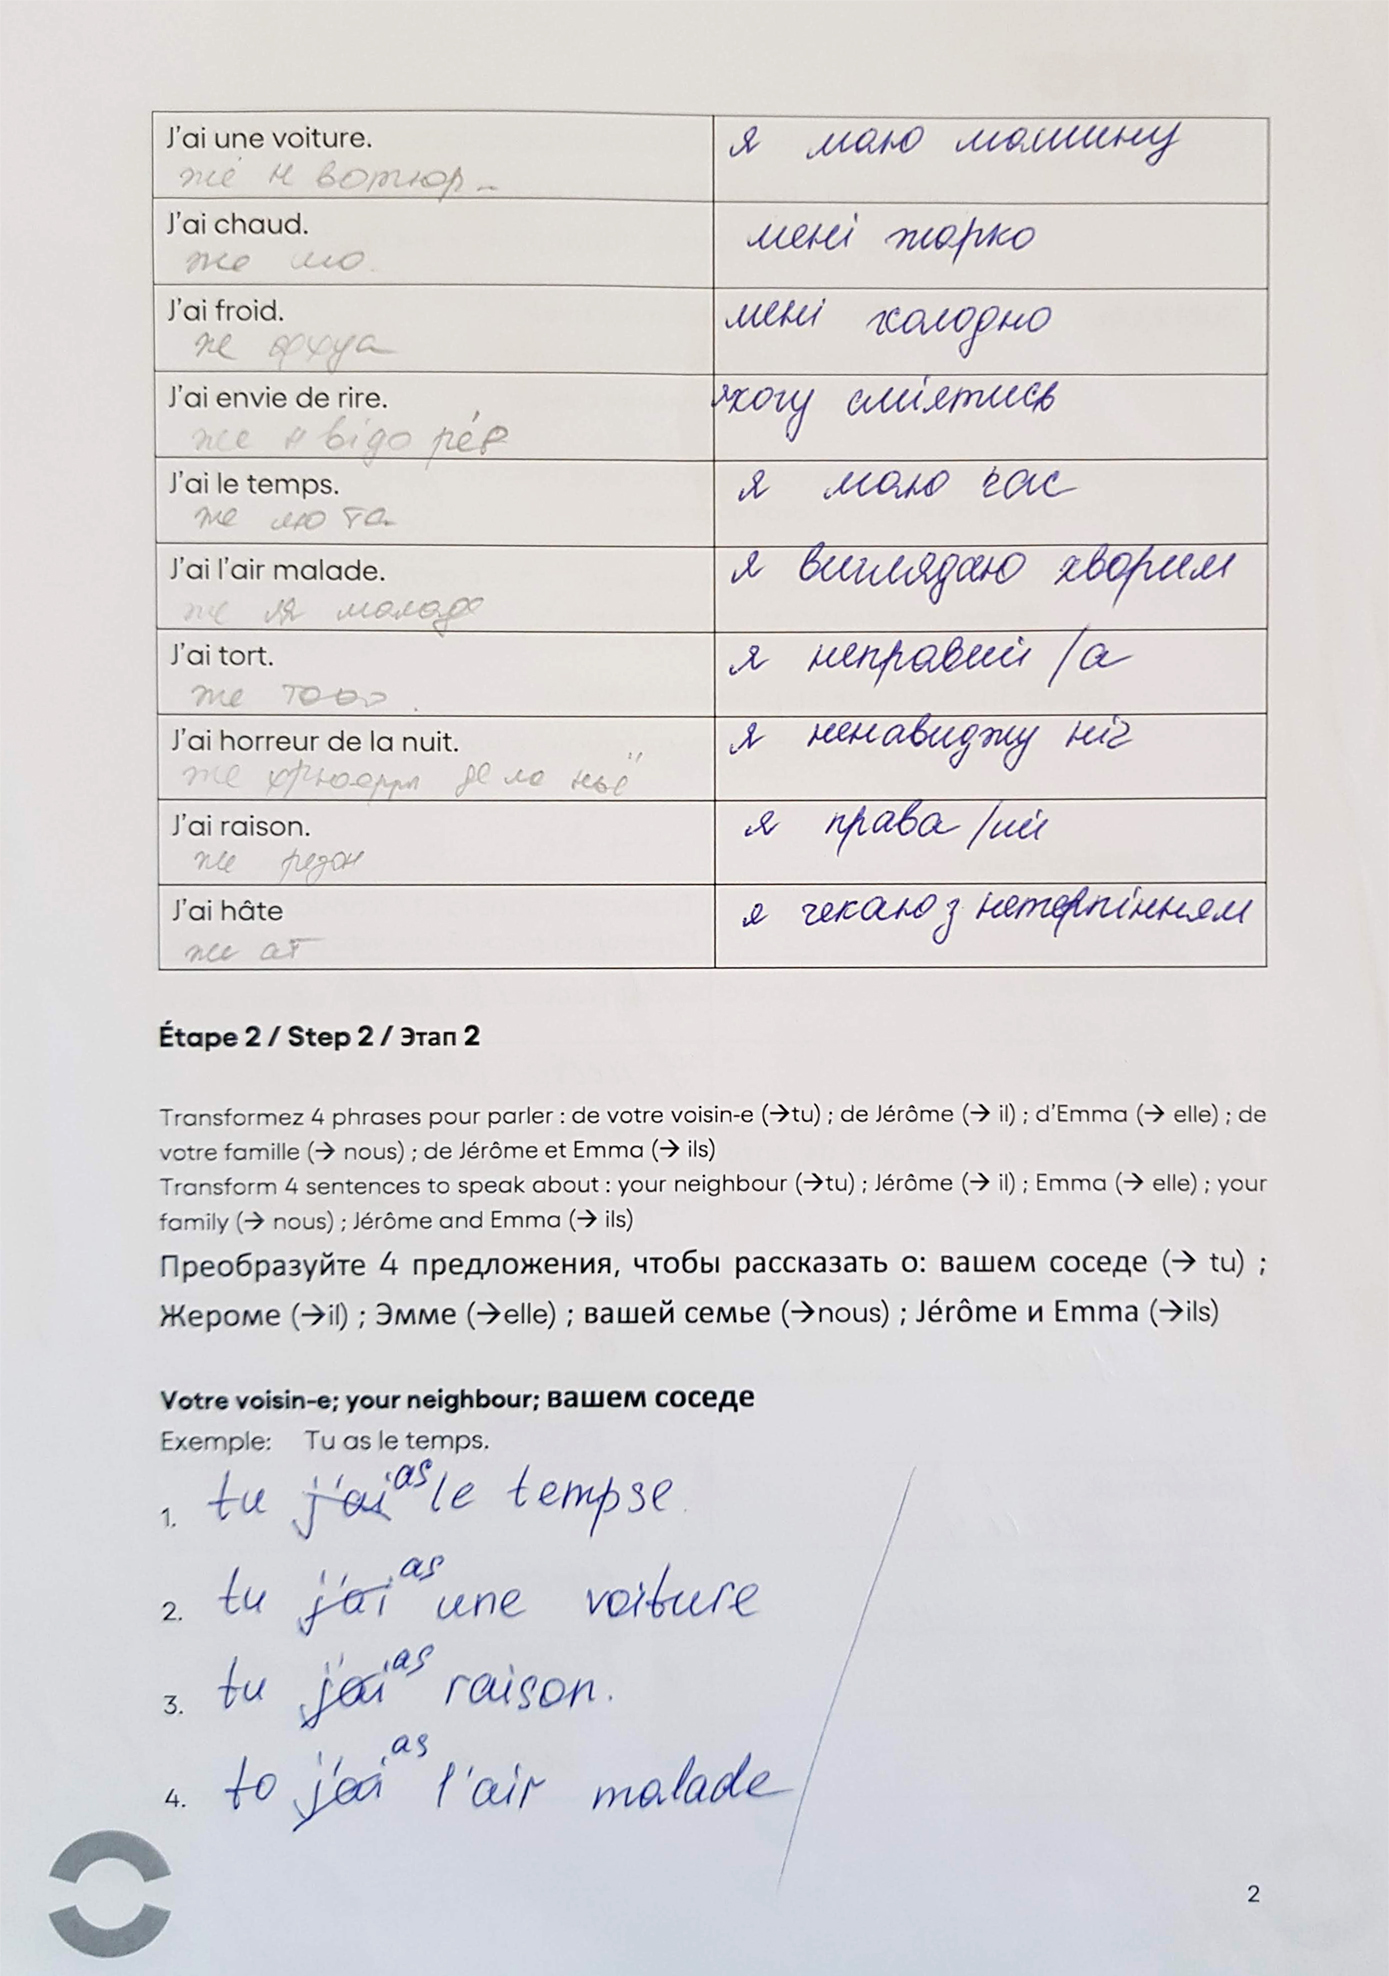 J'ai une voiture.
я маю машину
же н вотюр
J'ai chaud.
мені жарко
же шо.
J'ai froid.
мені холодно
же фхуа
J'ai envie de rire.
я хочу сміятись
же н відо рér
J'ai le temps.
я маю час
же лю та
J'ai l'air malade.
я виглядаю хворим
же ля маладе
J'ai tort.
я неправий /а
же тоор.
J'ai horreur de la nuit.
я ненавиджу ніч
же де ла
J'ai raison.
я права /ий
же резон
J'ai hâte
я чекаю з нетерпінням
же ат
Étape 2 / Step 2 / Этап 2
Transformez 4 phrases pour parler : de votre voisin-e (→tu) ; de Jérôme (→ il) ; d'Emma (→ elle) ; de
votre famille (→ nous) ; de Jérôme et Emma (→ ils)
Transform 4 sentences to speak about : your neighbour (→tu) ; Jérôme (→ il) ; Emma (→ elle) ; your
family (→ nous) ; Jérôme and Emma (→ ils)
Преобразуйте 4 предложения, чтобы рассказать о: вашем соседе (→ tu) ;
Жероме (→il) ; Эмме (→elle) ; вашей семье (→nous) ; Jérôme и Emma (→ils)
Votre voisin-e; your neighbour; вашем соседе
Exemple: Tu as le temps.
1. tu j'ai as le tempse.
2. tu j'ai as une voiture
3. tu j'ai as raison.
4. to j'ai as l'air malade
2